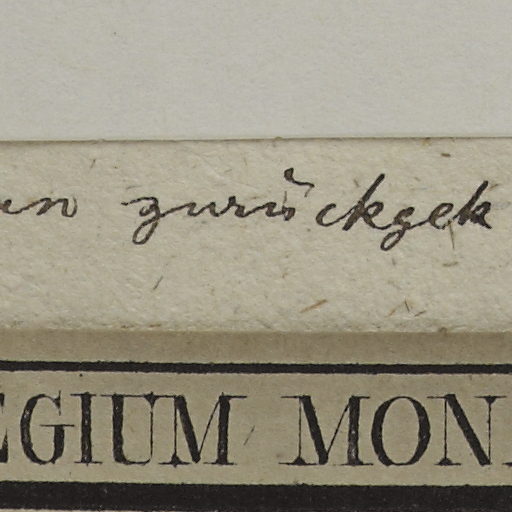 un zurückgek
EGIUM MON